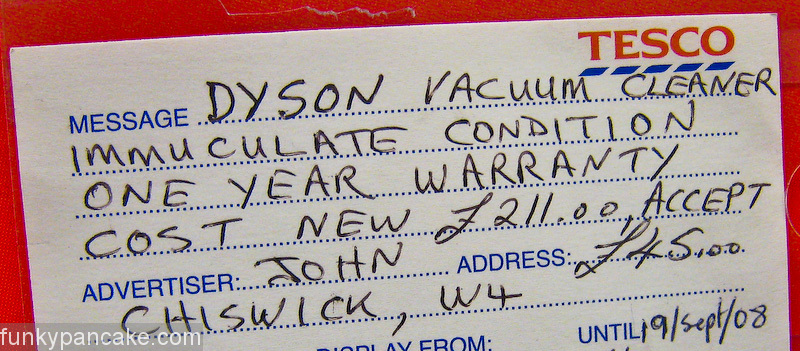 TESCO
MESSAGE DYSON VACUUM CLEANER
IMMUCULATE CONDITION
ONE YEAR WARRANTY
COST NEW £211.00, ACCEPT
ADVERTISER: JOHN ADDRESS: £45.00
CHISWICK, W4
DISPLAY FROM: UNTIL 19/Sept/08
funkypancake.com